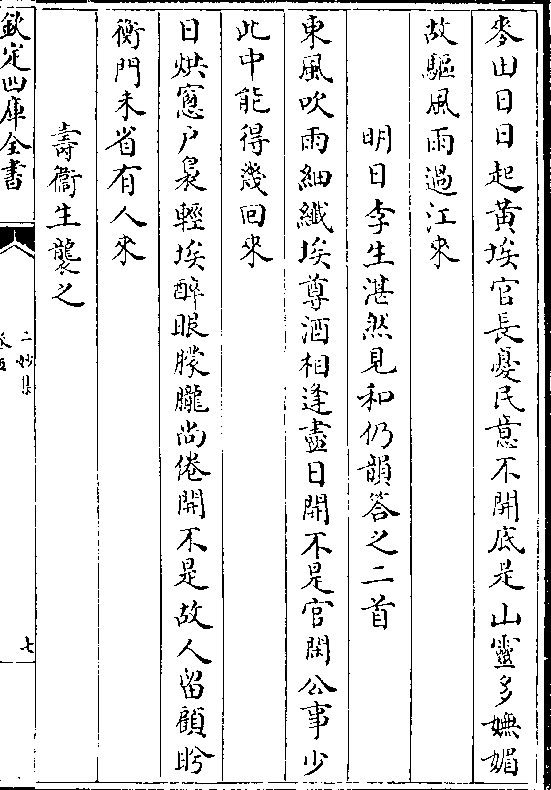 麥田日日起黃埃官長憂民意不開底是山靈多嫵媚
故驅風雨過江來
明日李生湛然見和仍韻答之二首
東風吹雨細纖埃尊酒相逢盡日開不是官閑公事少
此中能得幾回來
日烘窻戶裊輕埃醉眼朦朧尚倦開不是故人留顧盻
衡門未省有人來
壽衞生襲之
欽定四庫全書
二妙集
七